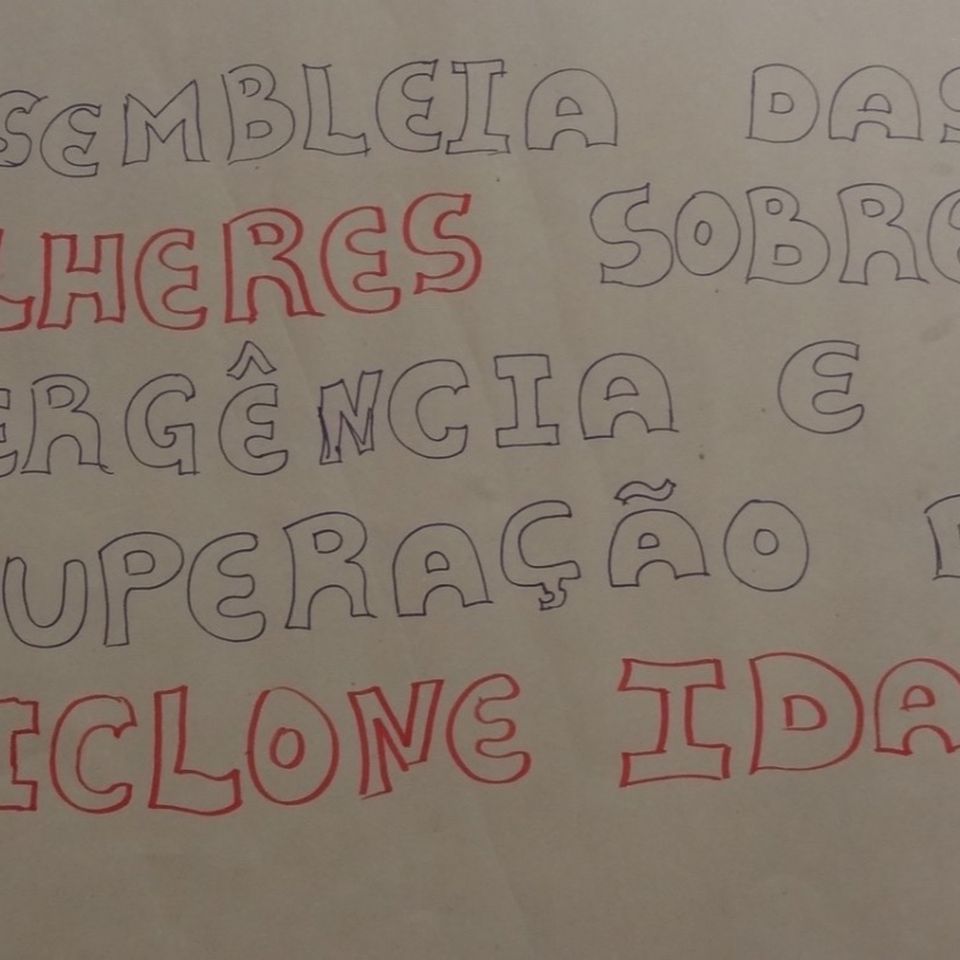 SEMBLEIA DAS
LHERES SOBRE
ERGÊNCIA E
UPERAÇÃO D
ICLONE IDA